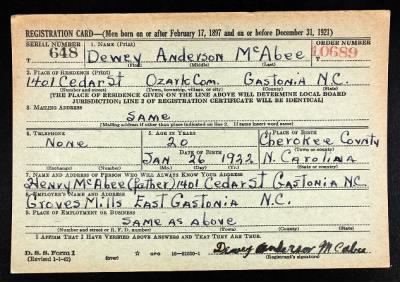 REGISTRATION CARD—(Men born on or after February 17, 1897 and on or before December 31, 1921)
SERIAL NUMBER 1. NAME (Print) ORDER NUMBER
T 648 Dewey Anderson McAbee 10689
(First) (Middle) (Last)
2. PLACE OF RESIDENCE (Print)
1401 Cedar St Ozark Com. Gastonia N.C.
(Number and street) (Town, township, village, or city) (County) (State)
[THE PLACE OF RESIDENCE GIVEN ON THE LINE ABOVE WILL DETERMINE LOCAL BOARD
JURISDICTION; LINE 2 OF REGISTRATION CERTIFICATE WILL BE IDENTICAL]
3. MAILING ADDRESS
Same
[Mailing address if other than place indicated on line 2. If same insert word same]
4. TELEPHONE 5. AGE IN YEARS 6. PLACE OF BIRTH
None 20 Cherokee County
DATE OF BIRTH (Town or county)
JAN 26 1922 N. Carolina
(Exchange) (Number) (Mo.) (Day) (Yr.) (State or country)
7. NAME AND ADDRESS OF PERSON WHO WILL ALWAYS KNOW YOUR ADDRESS
Henry McAbee (Father) 1401 Cedar St Gastonia NC
8. EMPLOYER'S NAME AND ADDRESS
Groves Mills East Gastonia N.C.
9. PLACE OF EMPLOYMENT OR BUSINESS
Same as above
(Number and street or R. F. D. number) (Town) (County) (State)
I AFFIRM THAT I HAVE VERIFIED ABOVE ANSWERS AND THAT THEY ARE TRUE.
D. S. S. Form 1
(Revised 1-1-42) (over) GPO 16—21630-1 Dewey Anderson McAbee
(Registrant's signature)